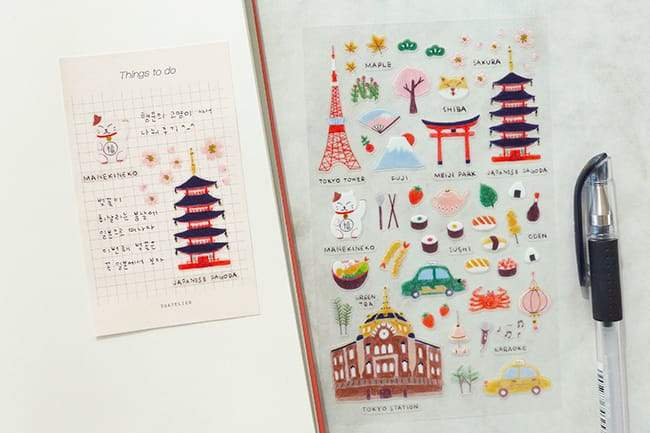 Things to do
행운의 고양이 께서
MANEKINEKO
벚꽃이
흩날리는 봄날에
일본으로 떠나자
이번해 벚꽃은
꼭 일본에서 보자
JAPANESE PAGODA
MAPLE
SAKURA
SHIBA
TOKYO TOWER
FUJI
MEIJI PARK
JAPANESE PAGODA
MANEKINEKO
SUSHI
ODEN
GREEN TEA
KARAOKE
TOKYO STATION